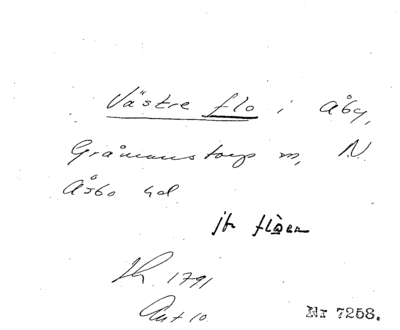 Västre flo i Åby,
Gråmanstorp m, N.
Åsbo hd.
jfr floen
1791
Akt 10
Nr 7258.